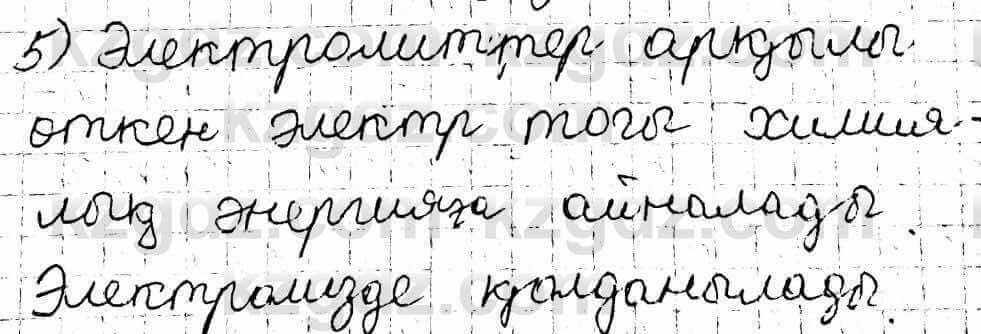 5) Электролиттер арқылы
өткен электр тогы химия-
лық энергияға айналады.
Электролизде қолданылады.